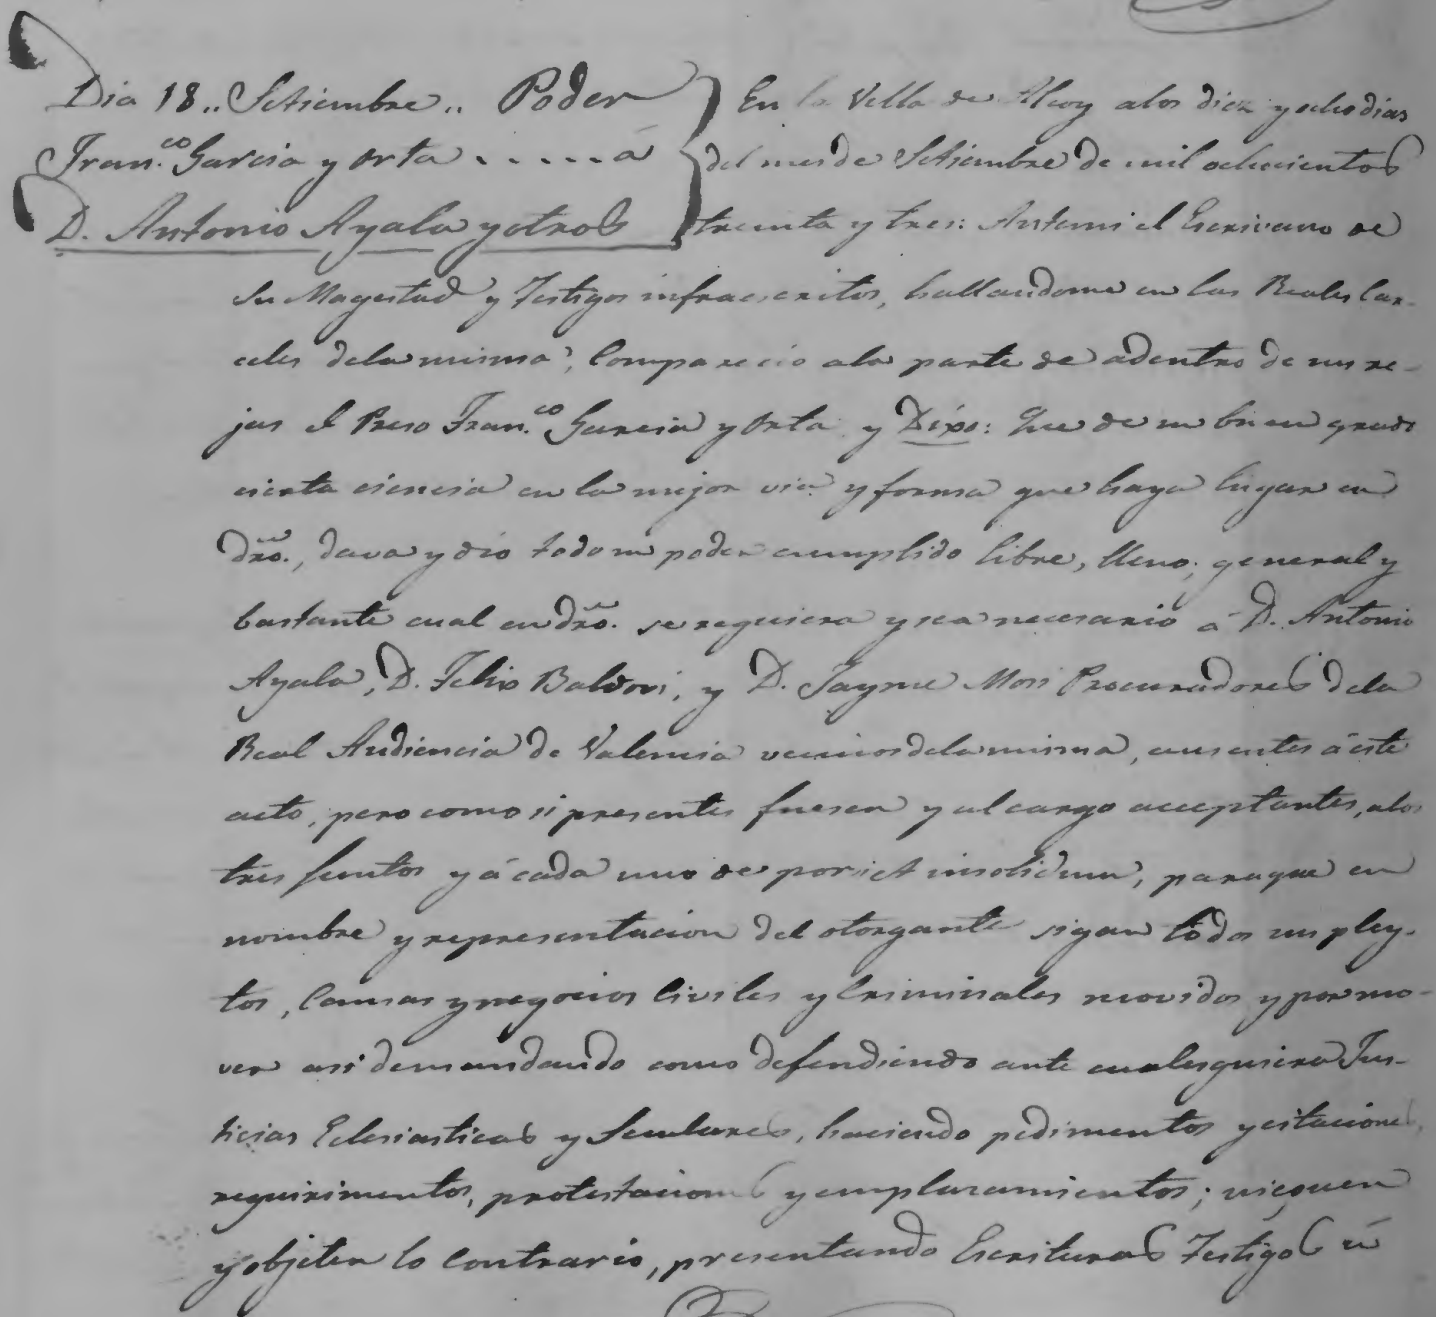 Dia 18.. Setiembre.. Poder
Fran.co Garcia y Orta . . . . . á
D. Antonio Ayala y otros
En la Villa de Alcoy a los diez y ocho dias
del mes de Setiembre de mil ochocientos
treinta y tres: Antemi el Escrivano de
Su Magestad y Testigos infraescritos, hallandome en las Reales Car-
celes dela misma, Comparecio ala parte de adentro de sus re-
jas el Preso Fran.co Garcia y Orta y Dixo: Que de su buen grado
cierta ciencia en la mejor via y forma que haya lugar en
dro., dava y dio todo su poder cumplido libre, lleno, general y
bastante cual en dro. se requiera y sea necesario á D. Antonio
Ayala, D. Felix Baldovi, y D. Jayme Mosi Procuradores dela
Real Audiencia de Valencia vecinos dela misma, ausentes á este
acto, pero como si presentes fuesen y al cargo acceptantes, alos
tres juntos y á cada uno de por si et insolidum, paraque en
nombre y representacion del otorgante sigan todos sus pley-
tos, Causas y negocios Civiles y Criminales movidos y por mo-
ver asi demandando como defendiendo ante cualesquiera Jus-
ticias Eclesiasticas y Seculares, haciendo pedimentos y citaciones,
requirimentos, protestaciones y emplazamientos; nieguen
y objeten lo contrario, presentando Escrituras Testigos ú